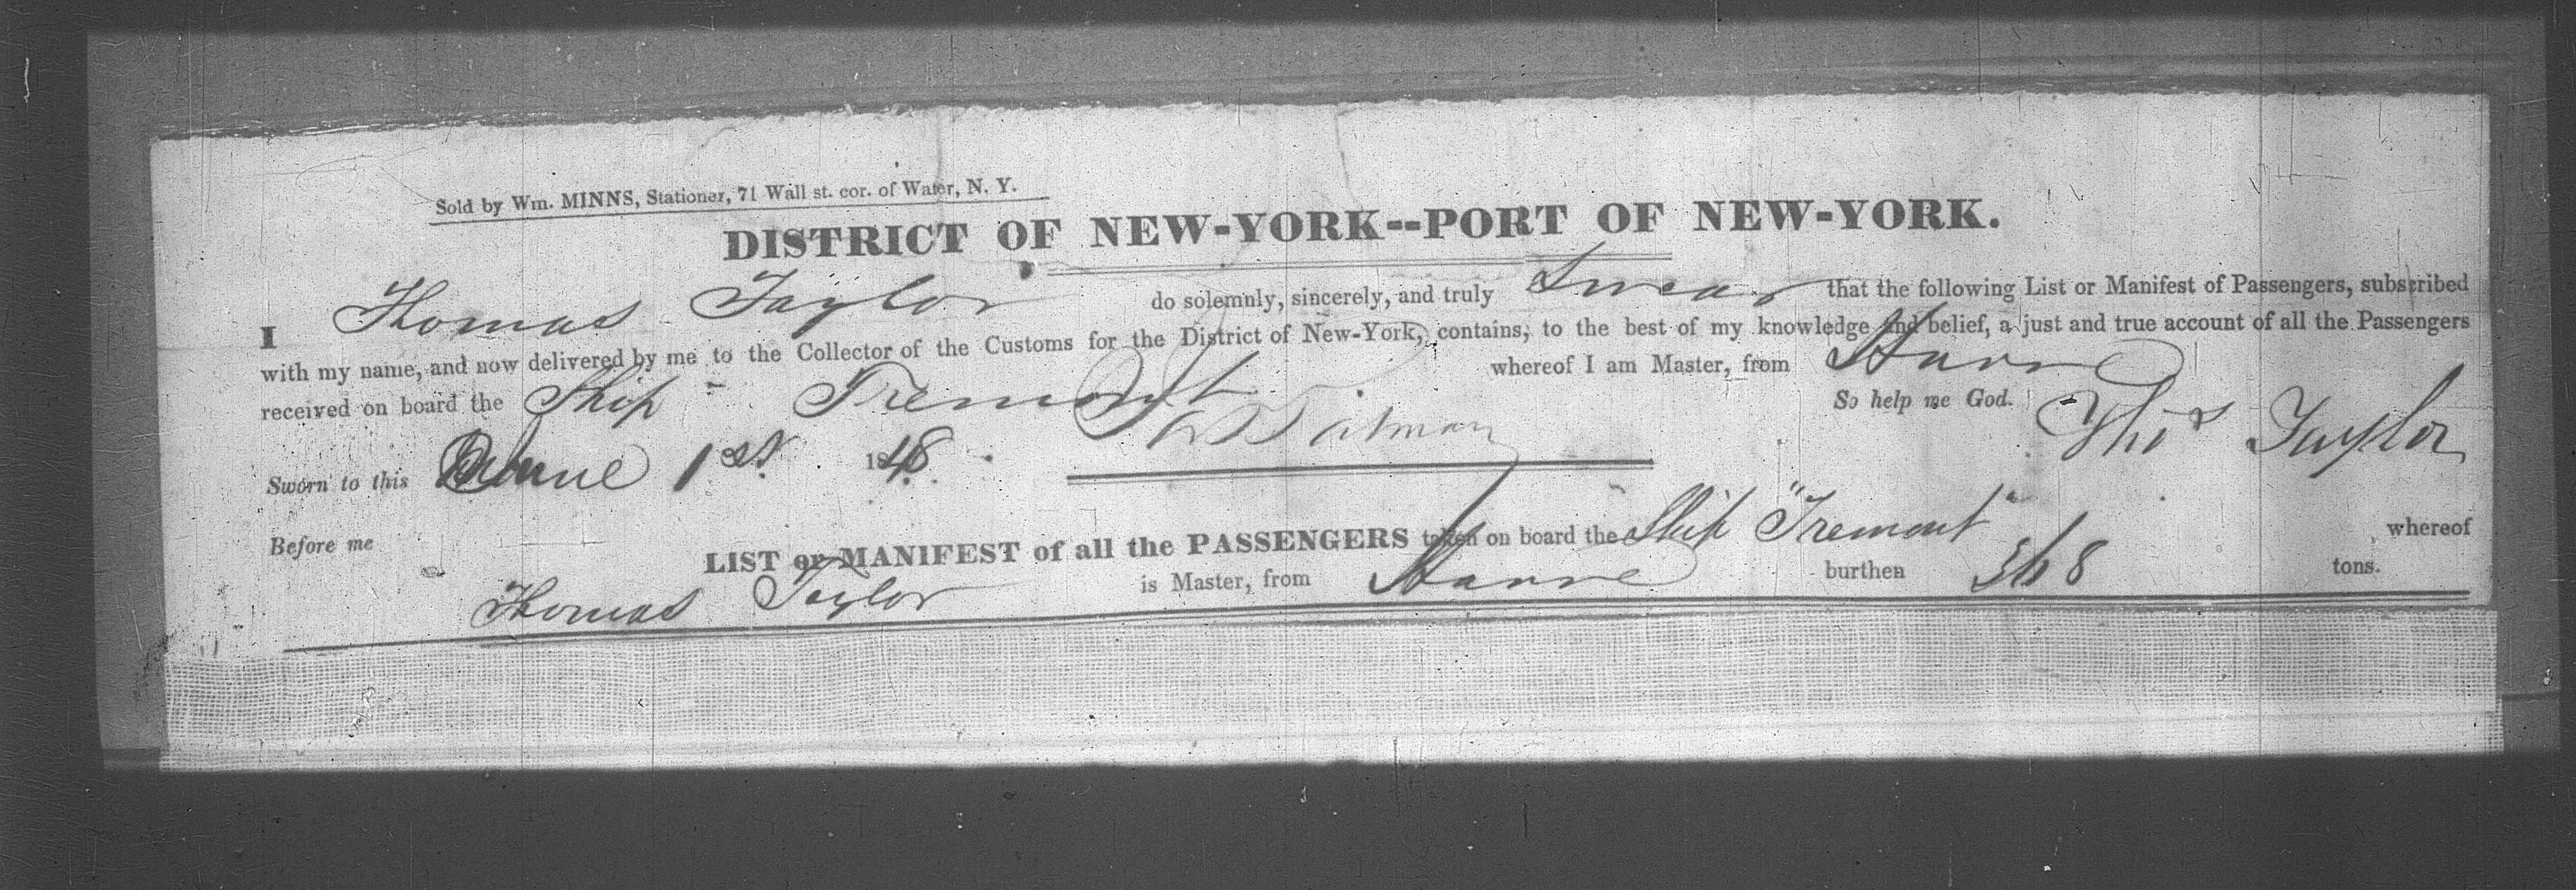 Sold by Wm. MINNS, Stationer, 71 Wall st. cor. of Water, N. Y.
DISTRICT OF NEW-YORK--PORT OF NEW-YORK.
I Thomas Taylor do solemnly, sincerely, and truly Swear that the following List or Manifest of Passengers, subscribed
with my name, and now delivered by me to the Collector of the Customs for the District of New-York, contains, to the best of my knowledge and belief, a just and true account of all the Passengers
received on board the Ship Tremont whereof I am Master, from Havre
So help me God. Thos Taylor
Sworn to this June 1st 1848.
Before me
LIST or MANIFEST of all the PASSENGERS taken on board the Ship "Tremont" whereof
Thomas Taylor is Master, from Havre burthen 368 tons.